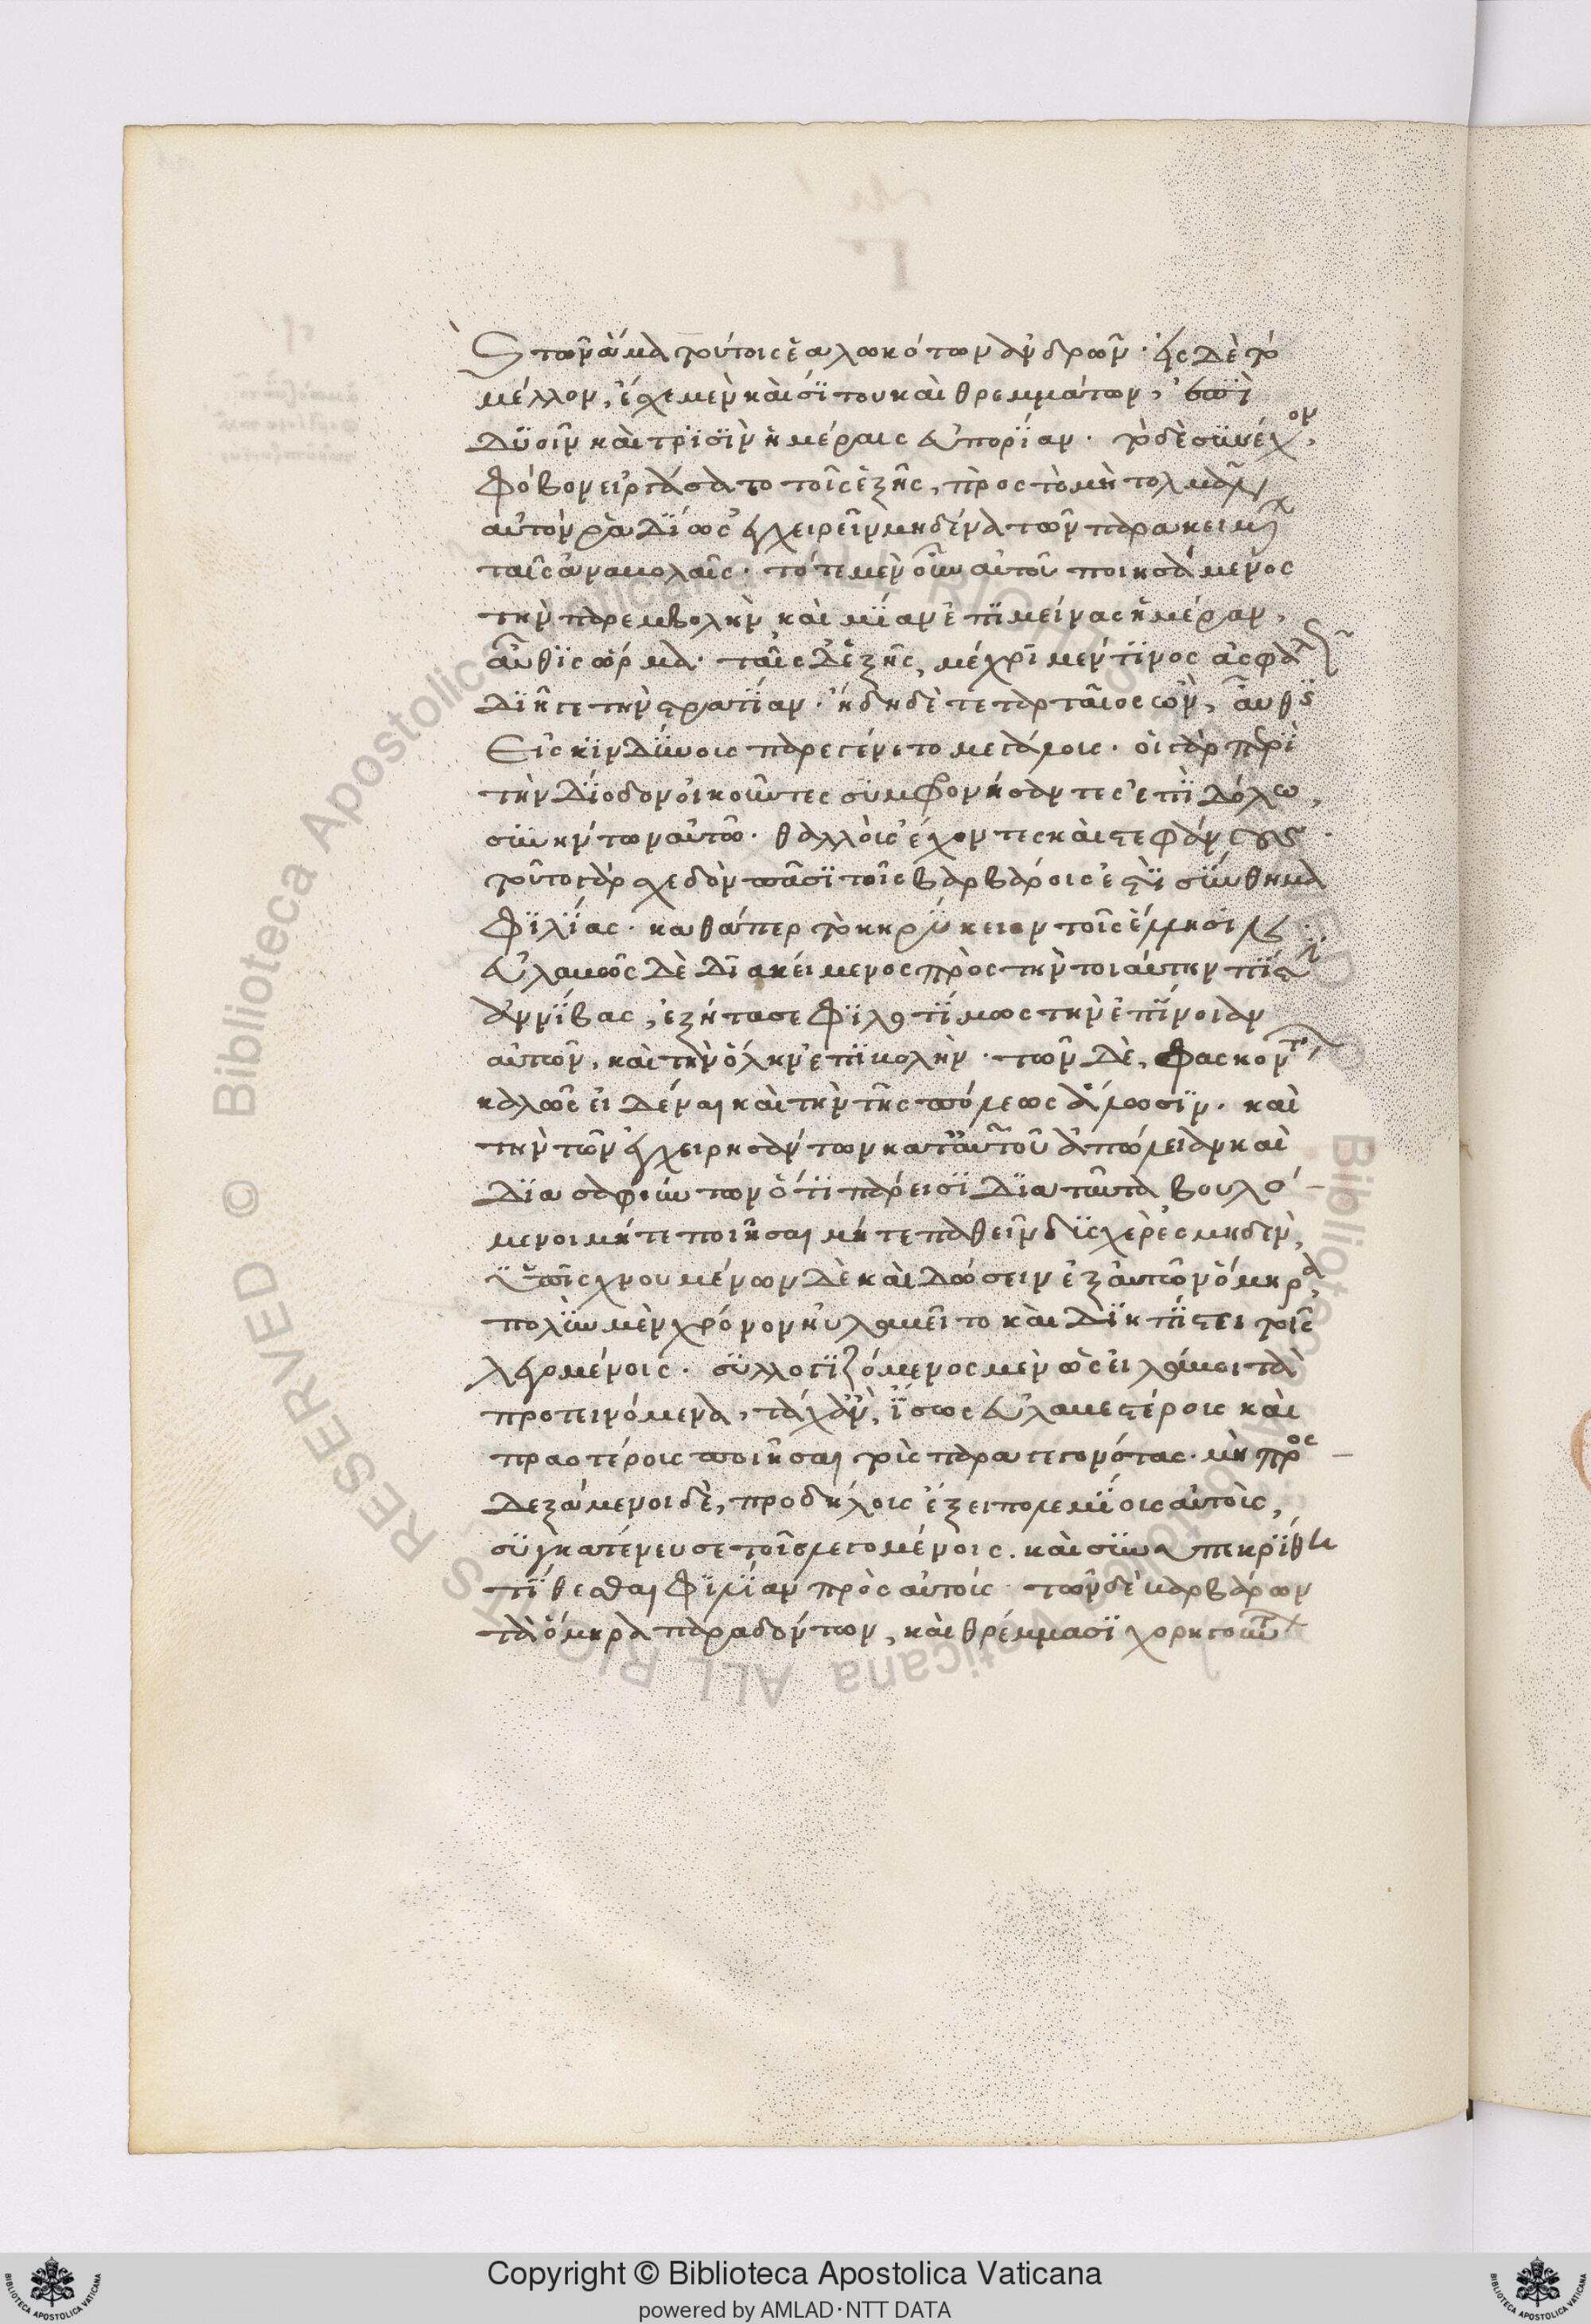 ς τῶν ἅμα τούτοις ἑαλωκότων ἀνδρῶν· εἰς δὲ τὸ
μέλλον, ἔσχε μὲν καὶ σίτου καὶ θρεμμάτων, ἐπὶ
δυοῖν καὶ τρισὶν ἡμέραις εὐπορίαν· τὸ δὲ συνέχον,
φόβον εἰργάσατο τοῖς ἑξῆς, πρὸς τὸ μὴ τολμᾶν
αὐτὸν ῥαδίως ἐγχειρεῖν μηδένα τῶν παρακειμένων
ταῖς ἀναβολαῖς· τότε μὲν οὖν αὐτοῦ ποιησάμενος
τὴν παρεμβολὴν καὶ μίαν ἐπιμείνας ἡμέραν,
αὖθις ὥρμα· ταῖς δ' ἑξῆς, μέχρι μέν τινος ἀσφαλῶς
διῆγε τὴν στρατίαν· ἤδη δὲ τεταρταῖος ὢν, αὖθις
εἰς κινδύνους παρεγένετο μεγάλους· οἱ γὰρ περὶ
τὴν δίοδον οἰκοῦντες συμφρονήσαντες ἐπὶ δόλω,
συνήντων αὐτῶ· θαλλοὺς ἔχοντες καὶ στεφάνους·
τοῦτο γὰρ σχεδὸν πᾶσι τοῖς βαρβάροις ἐστὶ σύνθημα
φιλίας· καθάπερ τὸ κηρύκειον τοῖς ἕλλησιν·
εὐλαβῶς δὲ διακείμενος πρὸς τὴν τοιαύτην πίστιν
ἀννίβας, ἐξήτασε φιλοτίμως τὴν ἐπίνοιαν
αὐτῶν, καὶ τὴν ὅλην ἐπιβολὴν· τῶν δὲ, φασκόντων
καλῶς εἰδέναι καὶ τὴν τῆς πόλεως ἅλωσιν· καὶ
τὴν τῶν ἐγχειρησάντων κατ' αὐτοῦ ἀπώλειαν καὶ
διασαφούντων ὅτι πάρεισι διὰ ταῦτα βουλό-
μενοι μήτε ποιῆσαι μήτε παθεῖν δυσχερὲς μηδὲν,
ὑπισχνουμένων δὲ καὶ δώσειν ἐξ αὐτῶν ὅμηρα,
πολὺν μὲν χρόνον ηὐλαβεῖτο καὶ διηπίστει τοῖς
λεγομένοις· συλλογιζόμενος μὲν ὡς εἰ λάβοι τὰ
προτεινόμενα, τάχ' ἂν, ἴσως εὐλαβεστέρους καὶ
πραοτέρους ποιῆσαι τοὺς παραγεγονότας· μὴ προσ-
δεξάμενοι δὲ, προδήλους ἕξει πολεμίους αὐτοὺς,
συγκατένευσε τοῖς λεγομένοις. καὶ συνυπεκρίθη
τίθεσθαι φιλίαν πρὸς αὐτούς· τῶν δὲ βαρβάρων
τὰ ὅμηρα παραδόντων, καὶ θρέμμασι χορηγούντων
Copyright © Biblioteca Apostolica Vaticana
powered by AMLAD·NTT DATA